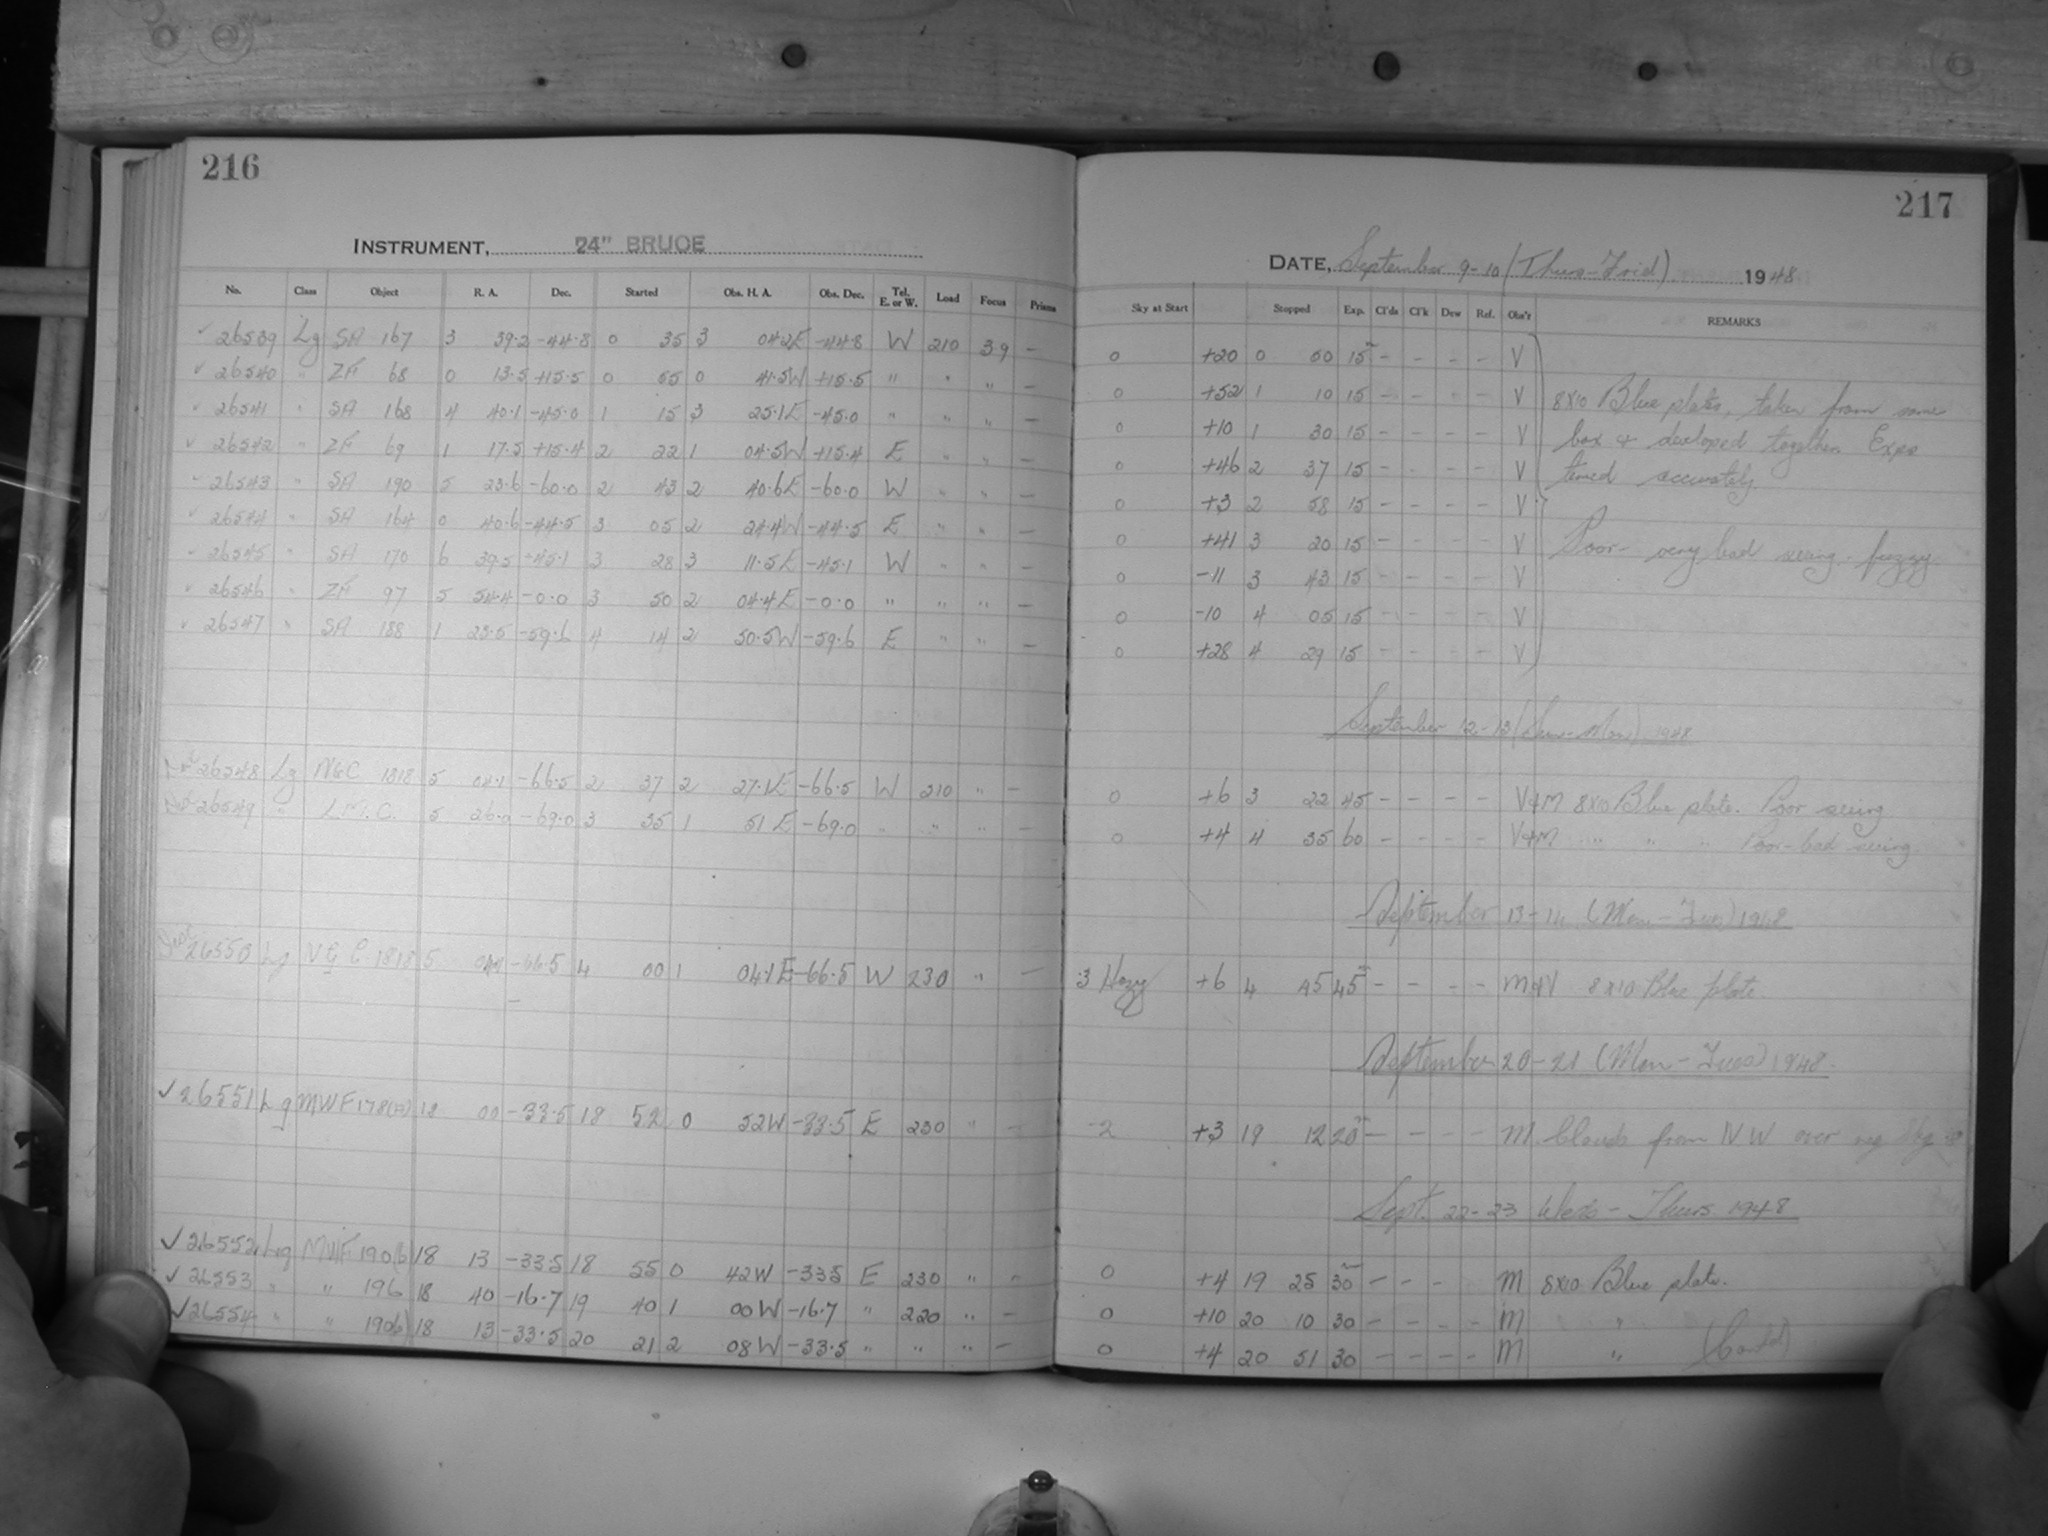 216
INSTRUMENT, 24" BRUCE
No. Class Object R. A. Dec. Started Obs. H. A. Obs. Dec. Tel. E. or W. Load Focus Prisms
✓ 26539 Lg SA 167 3 39.2 -44.8 0 35 3 04.2E -44.8 W 210 3.9 -
✓ 26540 " ZF 68 0 13.5 +15.5 0 55 0 41.5W +15.5 " " " -
✓ 26541 " SA 168 4 40.1 -45.0 1 15 3 25.1E -45.0 " " " -
✓ 26542 " ZF 69 1 17.5 +15.4 2 22 1 04.5W +15.4 E " " -
✓ 26543 " SA 190 5 23.6 -60.0 2 43 2 40.6E -60.0 W " " -
✓ 26544 " SA 164 0 40.6 -44.5 3 05 2 24.4W -44.5 E " " -
✓ 26545 " SA 170 6 39.5 -45.1 3 28 3 11.5E -45.1 W " " -
✓ 26546 " ZF 97 5 54.4 -0.0 3 50 2 04.4E -0.0 " " " -
✓ 26547 " SA 188 1 23.5 -59.6 4 14 2 50.5W -59.6 E " " -
26548 Lg NGC 1818 5 04.1 -66.5 2 37 2 27.1E -66.5 W 210 " -
26549 " L.M.C. 5 26.0 -69.0 3 35 1 51 E -69.0 " " " -
26550 Lg NGC 1818 5 04.1 -66.5 4 00 1 04.1E -66.5 W 230 " -
✓ 26551 Lg MWF 178 18 00 -33.5 18 52 0 52W -33.5 E 230 " -
✓ 26552 Lg MWF 190(b) 18 13 -33.5 18 55 0 42W -33.5 E 230 " "
✓ 26553 " " 196 18 40 -16.7 19 40 1 00W -16.7 " 220 " -
✓ 26554 " " 190(b) 18 13 -33.5 20 21 2 08W -33.5 " " " -
217
DATE, September 9-10 (Thurs-Frid) 1948
Sky at Start Stopped Exp. Cl'ds Cl'k Dew Ref. Obs'r REMARKS
0 +20 0 50 15 - - - - V
0 +52 1 10 15 - - - - V 8x10 Blue plates, taken from same
0 +10 1 30 15 - - - - V box & developed together. Expo
0 +46 2 37 15 - - - - V timed accurately.
0 +3 2 58 15 - - - - V
0 +41 3 20 15 - - - - V Poor - very bad seeing - fuzzy.
0 -11 3 43 15 - - - - V
0 -10 4 05 15 - - - - V
0 +28 4 29 15 - - - - V
September 12-13 (Sun-Mon) 1948
0 +6 3 22 45 - - - - V&M 8x10 Blue plate. Poor seeing
0 +4 4 35 60 - - - - V&M " " " Poor-bad seeing
September 13-14 (Mon-Tues) 1948
3 Hazy +6 4 45 45 - - - - M&V 8x10 Blue plate.
September 20-21 (Mon-Tues) 1948.
2 +3 19 12 20 - - - - M Clouds from NW over
Sept. 22-23 Weds - Thurs 1948
0 +4 19 25 30 - - - M 8x10 Blue plate.
0 +10 20 10 30 - - - - M "
0 +4 20 51 30 - - - - M " (Contd)